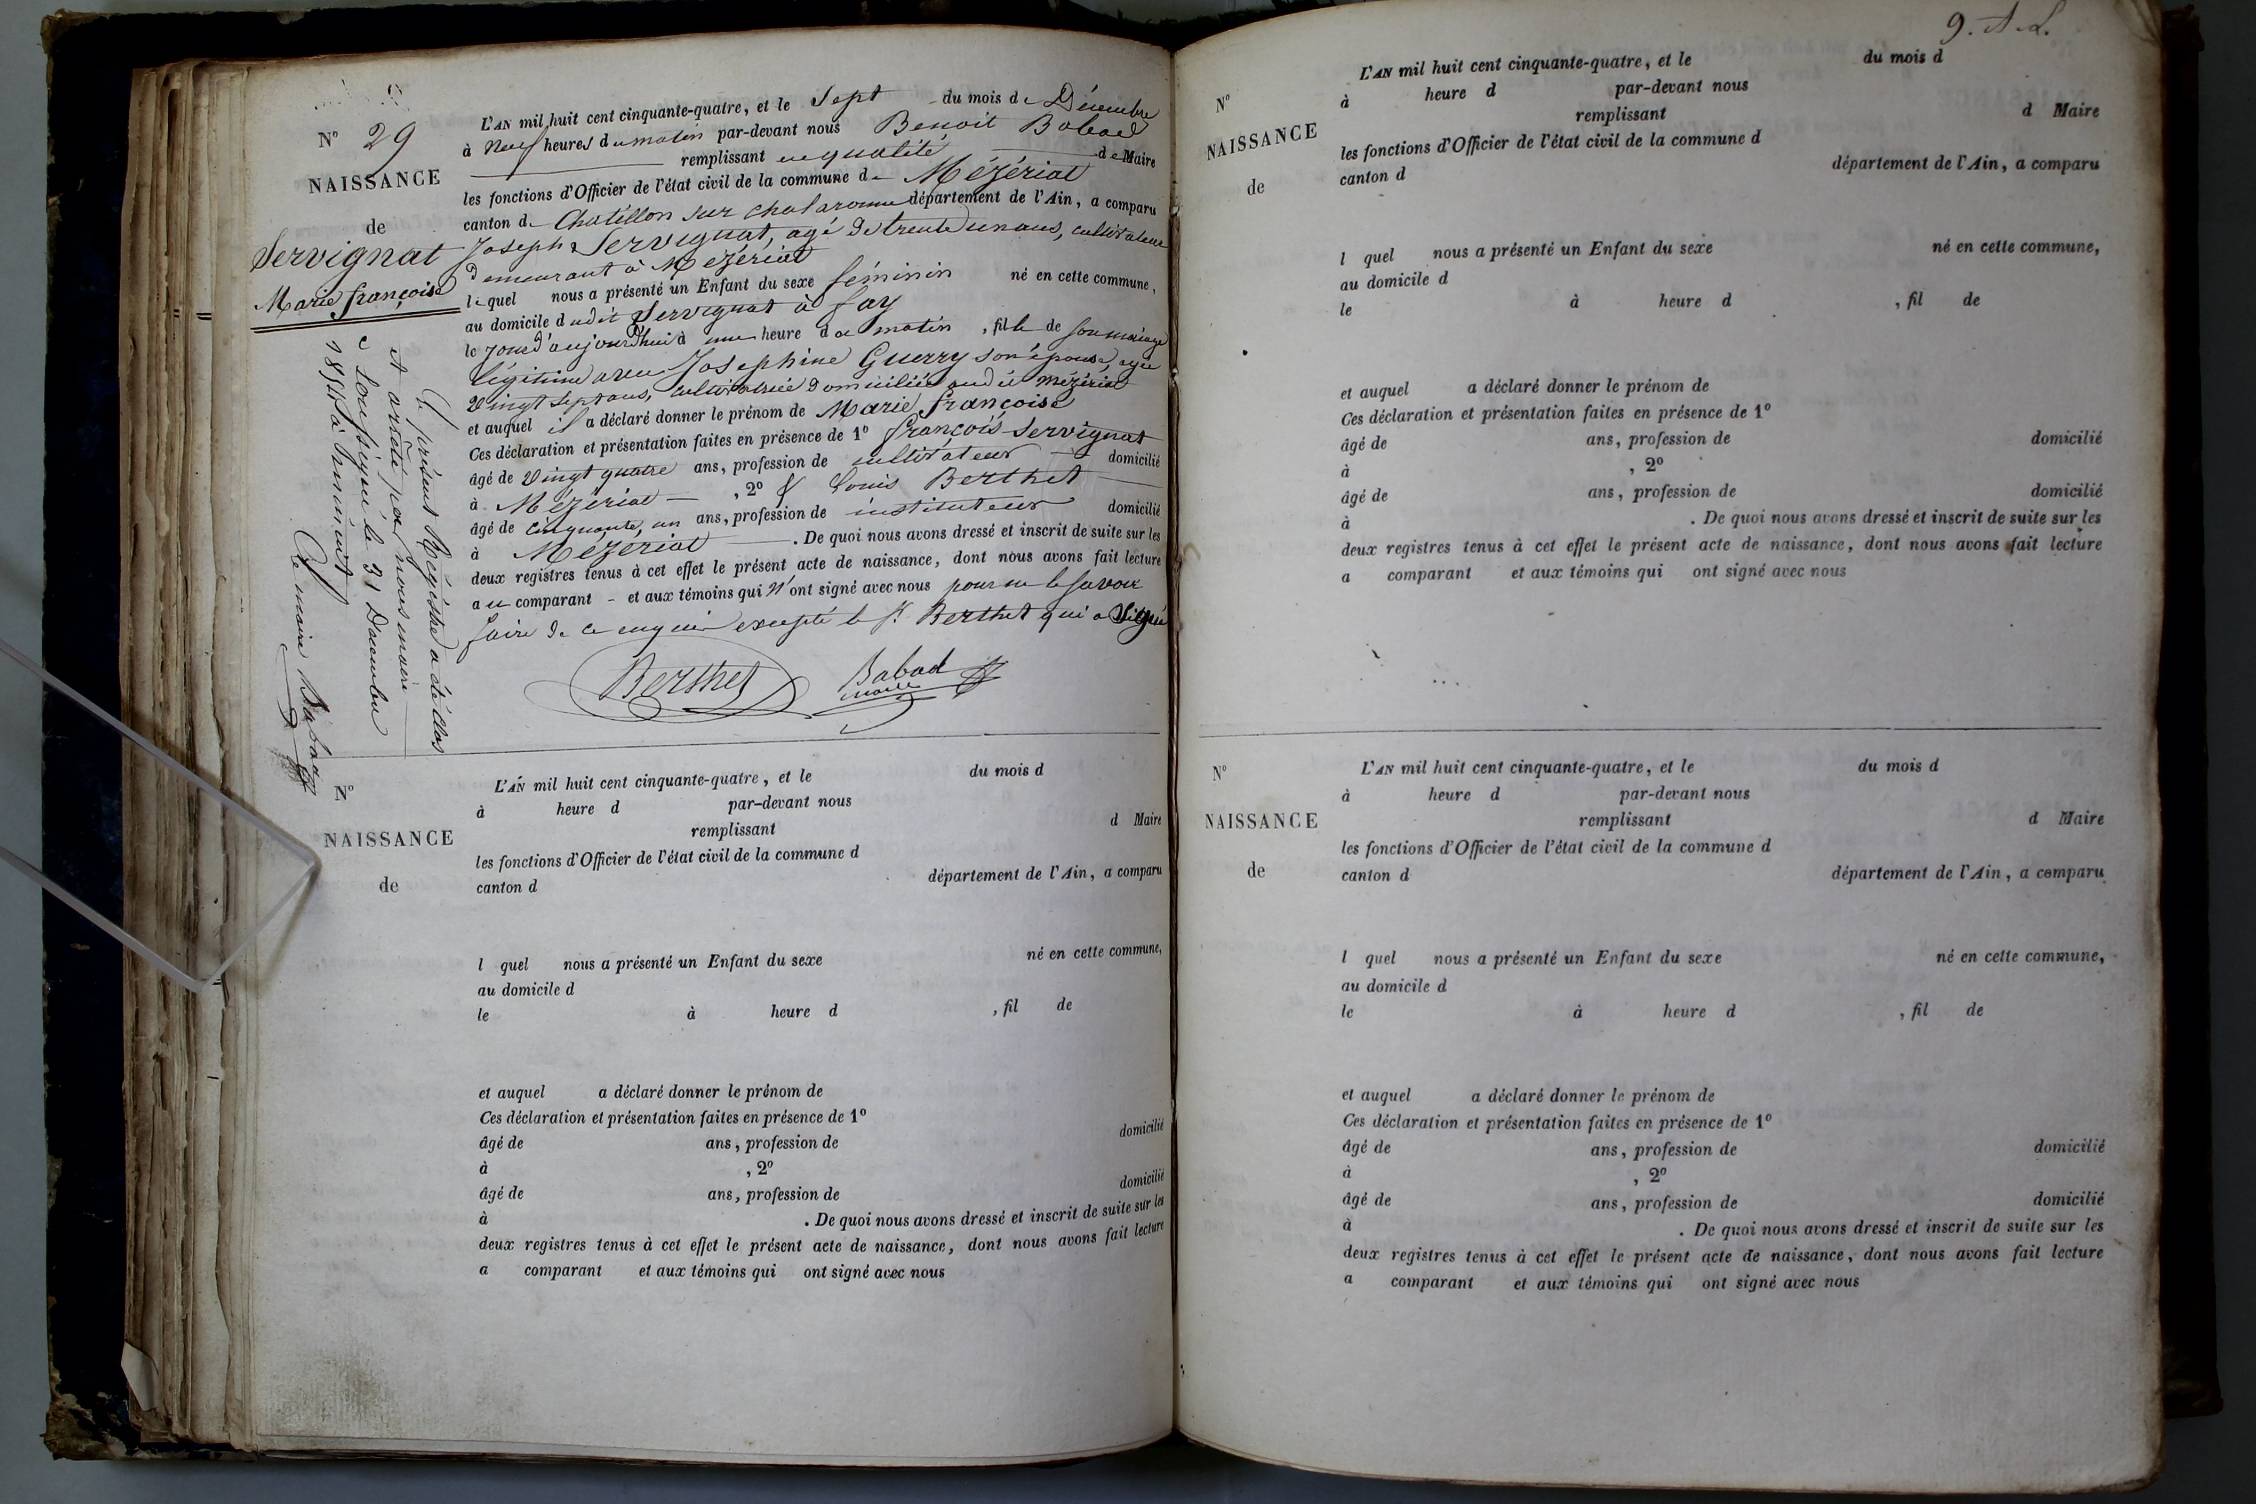 N° 29
NAISSANCE
de
Servignat
Marie françoise
L'AN mil huit cent cinquante-quatre, et le Sept du mois de Décembre
à Neuf heures du matin par-devant nous Benoit Babad
remplissant en qualité de Maire
les fonctions d'Officier de l'état civil de la commune de Mézériat
canton de Chatillon sur chalaronne département de l'Ain, a comparu
Joseph Servignat, agé de trente un ans, cultivateur
demeurant à Mézériat
lequel nous a présenté un Enfant du sexe féminin né en cette commune,
au domicile dudit Servignat à fay
le jour d'aujourd'hui à une heure du matin, fille de son mariage
légitime avec Josephine Guerry son épouse, agée
Vingt sept ans, cultivatrice domiciliée audit Mézériat
et auquel il a déclaré donner le prénom de Marie françoise
Ces déclaration et présentation faites en présence de 1° françois Servignat
âgé de Vingt quatre ans, profession de cultivateur domicilié
à Mézériat, 2° Louis Berthet
âgé de cinquante un ans, profession de instituteur domicilié
à Mézériat. De quoi nous avons dressé et inscrit de suite sur les
deux registres tenus à cet effet le présent acte de naissance, dont nous avons fait lecture
au comparant et aux témoins qui N'ont signé avec nous pour ne le savoir
faire de ce enquis excepté le Sr Berthet qui a Signé
Berthet
Babad
maire
Le présent Régistre a été clos
et arrêté par nous maire
soussigné le 31 Décembre
1854 à minuit
Le maire Babad
N°
NAISSANCE
de
L'AN mil huit cent cinquante-quatre, et le du mois d
à heure d par-devant nous
remplissant d Maire
les fonctions d'Officier de l'état civil de la commune d
canton d département de l'Ain, a comparu
l quel nous a présenté un Enfant du sexe né en cette commune,
au domicile d
le à heure d , fil de
et auquel a déclaré donner le prénom de
Ces déclaration et présentation faites en présence de 1°
âgé de ans, profession de domicilié
à , 2°
âgé de ans, profession de domicilié
à . De quoi nous avons dressé et inscrit de suite sur les
deux registres tenus à cet effet le présent acte de naissance, dont nous avons fait lecture
a comparant et aux témoins qui ont signé avec nous
9. A.L.
N°
NAISSANCE
de
L'AN mil huit cent cinquante-quatre, et le du mois d
à heure d par-devant nous
remplissant d Maire
les fonctions d'Officier de l'état civil de la commune d
canton d département de l'Ain, a comparu
l quel nous a présenté un Enfant du sexe né en cette commune,
au domicile d
le à heure d , fil de
et auquel a déclaré donner le prénom de
Ces déclaration et présentation faites en présence de 1°
âgé de ans, profession de domicilié
à , 2°
âgé de ans, profession de domicilié
à . De quoi nous avons dressé et inscrit de suite sur les
deux registres tenus à cet effet le présent acte de naissance, dont nous avons fait lecture
a comparant et aux témoins qui ont signé avec nous
N°
NAISSANCE
de
L'AN mil huit cent cinquante-quatre, et le du mois d
à heure d par-devant nous
remplissant d Maire
les fonctions d'Officier de l'état civil de la commune d
canton d département de l'Ain, a comparu
l quel nous a présenté un Enfant du sexe né en cette commune,
au domicile d
le à heure d , fil de
et auquel a déclaré donner le prénom de
Ces déclaration et présentation faites en présence de 1°
âgé de ans, profession de domicilié
à , 2°
âgé de ans, profession de domicilié
à . De quoi nous avons dressé et inscrit de suite sur les
deux registres tenus à cet effet le présent acte de naissance, dont nous avons fait lecture
a comparant et aux témoins qui ont signé avec nous